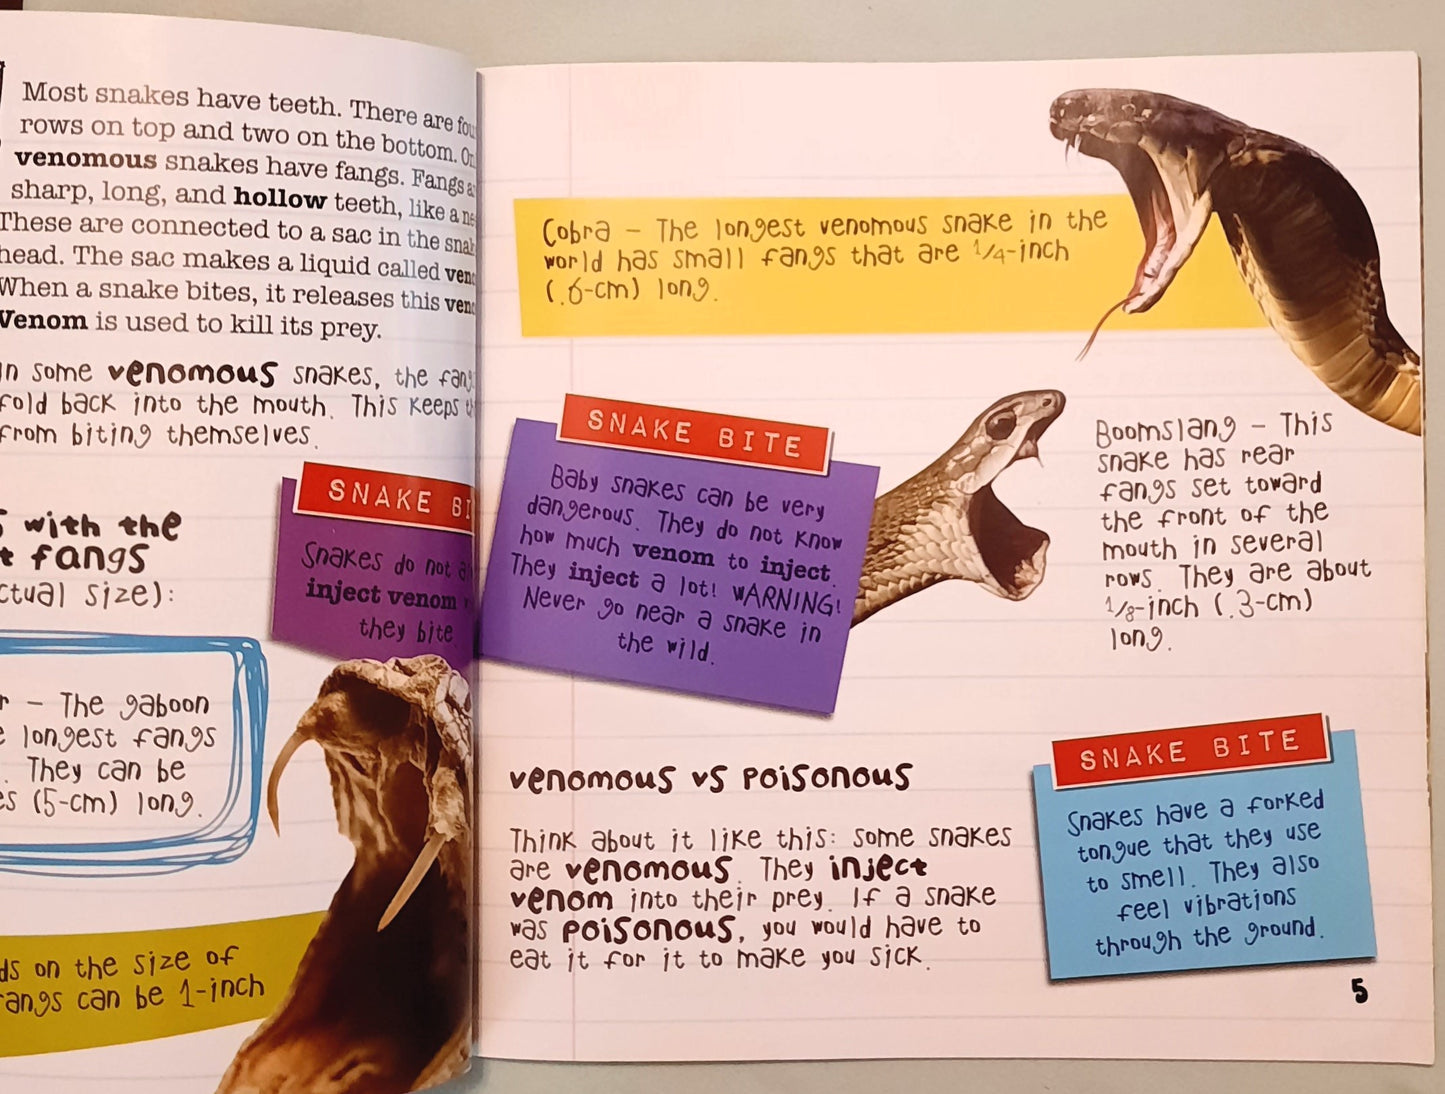 Most snakes have teeth. There are
rows on top and two on the bottom.
venomous snakes have fangs. Fangs
sharp, long, and hollow teeth, like a
These are connected to a sac in the
head. The sac makes a liquid called
When a snake bites, it releases this
Venom is used to kill its prey.
In some venomous snakes, the
fold back into the mouth. This keeps
from biting themselves.
SNAKE
Snakes do not
inject venom
they bite
with the
fangs
size):
– The gaboon
longest fangs
They can be
(5-cm) long.
on the size of
can be 1-inch
Cobra – The longest venomous snake in the
world has small fangs that are 1/4-inch
(.6-cm) long.
SNAKE BITE
Baby snakes can be very
dangerous. They do not know
how much venom to inject.
They inject a lot! WARNING!
Never go near a snake in
the wild.
Boomslang – This
snake has rear
fangs set toward
the front of the
mouth in several
rows. They are about
1/8-inch (.3-cm)
long.
venomous vs poisonous
Think about it like this: some snakes
are venomous. They inject
venom into their prey. If a snake
was poisonous, you would have to
eat it for it to make you sick.
SNAKE BITE
Snakes have a forked
tongue that they use
to smell. They also
feel vibrations
through the ground.
5